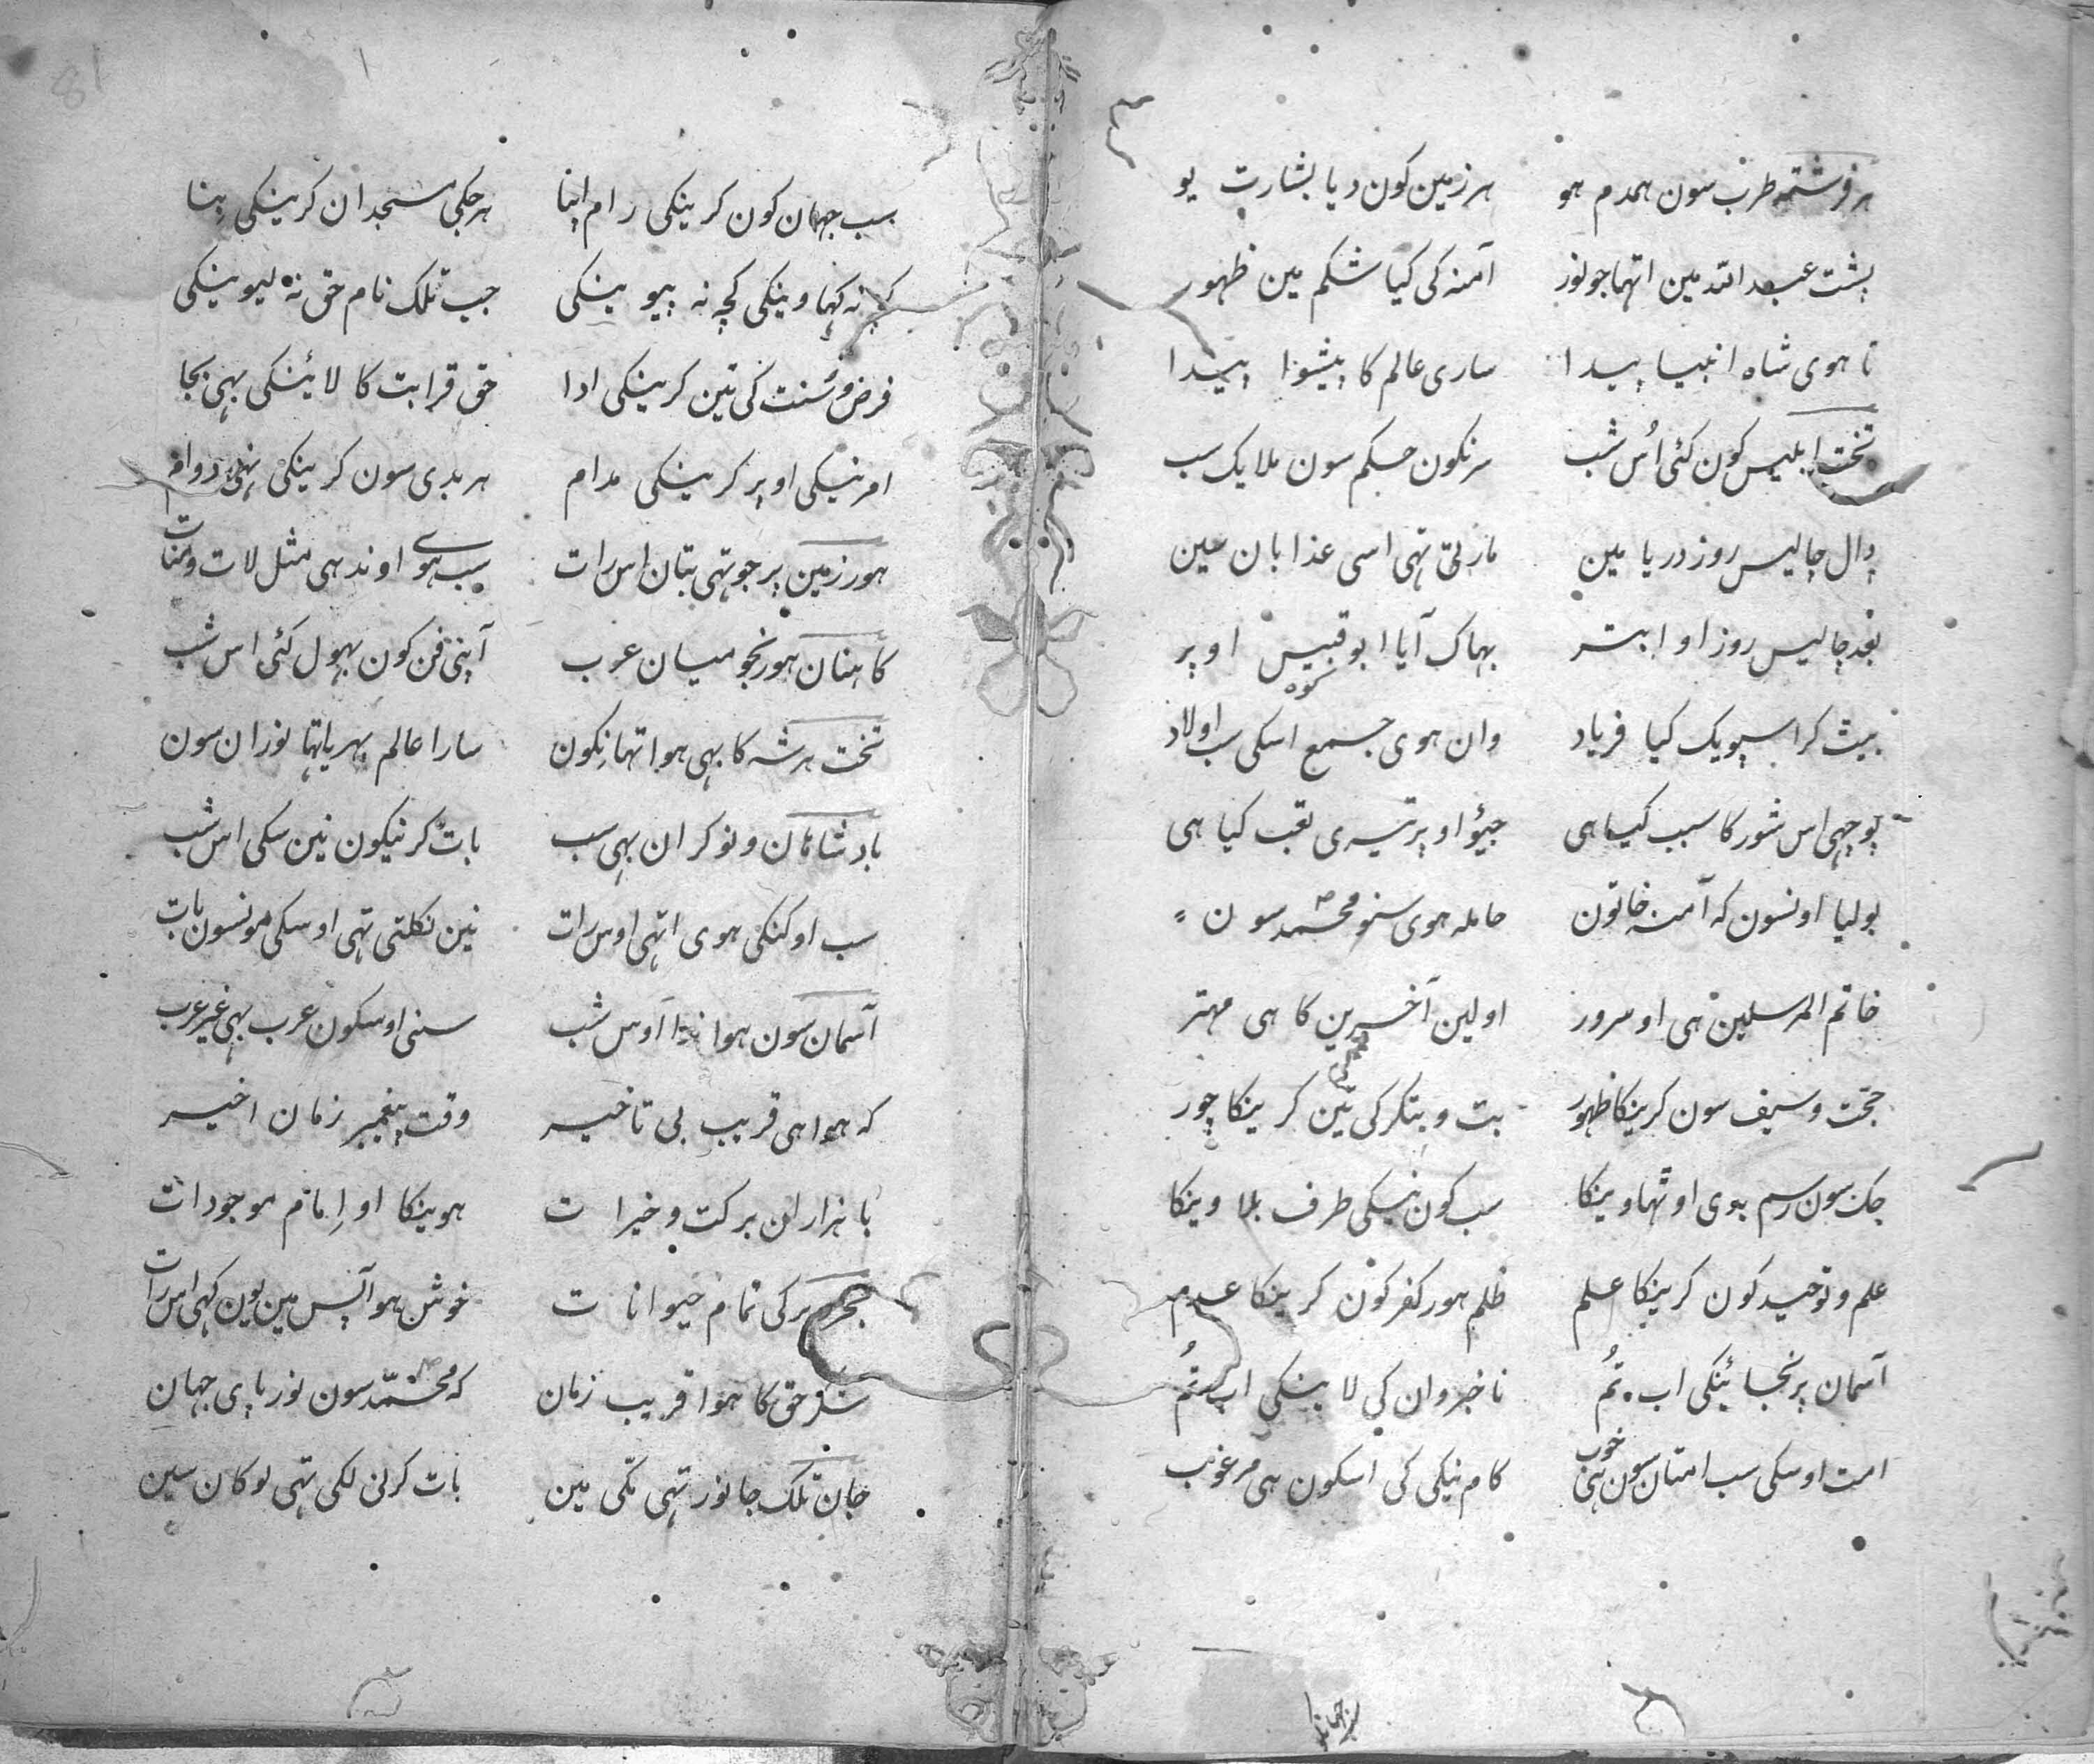 هر فرشته طرف سون همدم هو هر زمین کون دیا بشارت یو
پشت عبد الله مین اتها جو نور آمنه کی کیا شکم مین ظهور
تا هوی شاه انبیا پیدا ساری عالم کا پیشوا پیدا
تخت ابلیس کون کئی اُس شب سرنکون حکم سون ملایک سب
ڈال چالیس روز دریا مین مارتی تهی اسی عذابان سین
بعد چالیس روز او ابتر بهاک آیا ابو قبیس اوپر
کوه
بیٹ کر اسپو یک کیا فریاد وان هوی جمع اسکی سب اولاد
پوچهی اس شور کا سبب کیا هی جیؤ اوپر تیری تعب کیا هی
بولیا اونسون که آمنه خاتون حامله هوی سنو محمد سون
خاتم المرسلین هی او سرور اولین آخرین کا هی مهتر
حجت و سیف سون کرینکا ظهور بت و بتکر کی تین کرینکا چور
جک سون رسم بدی اوٹهاوینکا سب کون نیکی طرف بلاوینکا
علم و توحید کون کرینکا علم ظلم هور کفر کون کرینکا عدم
آسمان پر نجائنکی اب تُم نا خبر وان کی لاینکی اب تُم
امت اوسکی سب امتان سون هی خوب کام نیکی کی اسکون هی مرغوب
سب جهان کون
81
سب جهان کون کرینکی رام اپنا هر جکی مسجدان کرینکی بنا
کچ نه کهاوینکی کچه نه پیوینکی جب تلک نام حق نه لیوینکی
فرض و سُنت کی تین کرینکی ادا حق قرابت کا لائینکی بهی بجا
امر نیکی اوپر کرینکی مدام هر بدی سون کرینکی نهی دوام
هور زمین پر جو تهی بتان اس رات سب هوے اوندهی مثل لات و منات
کاهنان هور نجومیان عرب آپنی فن کون بهول کئی اس شب
تخت هر شه کا بهی هوا تها نکون سارا عالم بهریا تها نوران سون
بادشاهان و نوکران بهی سب بات کرنیکون نین سکی اس شب
سب اوکنکی هوی اتهی اوس رات نین نکلتی تهی اوسکی مونسون بات
آسمان سون هوا ندا اوس شب سنی اوسکون عرب بهی غیر عرب
که هوا هی قریب بی تاخیر وقت پیغمبر زمان اخیر
با هزاران برکت و خیرات هوینکا او اِمام موجودات
بحر و بر کی تمام حیوانات خوش هو آپس مین یون کهی اس رات
شکر حق کا هوا قریب زمان که محمّد سون نور پاپی جهان
جان تلک جانور تهی مکی مین بات کرنی لکی تهی لوکان سین